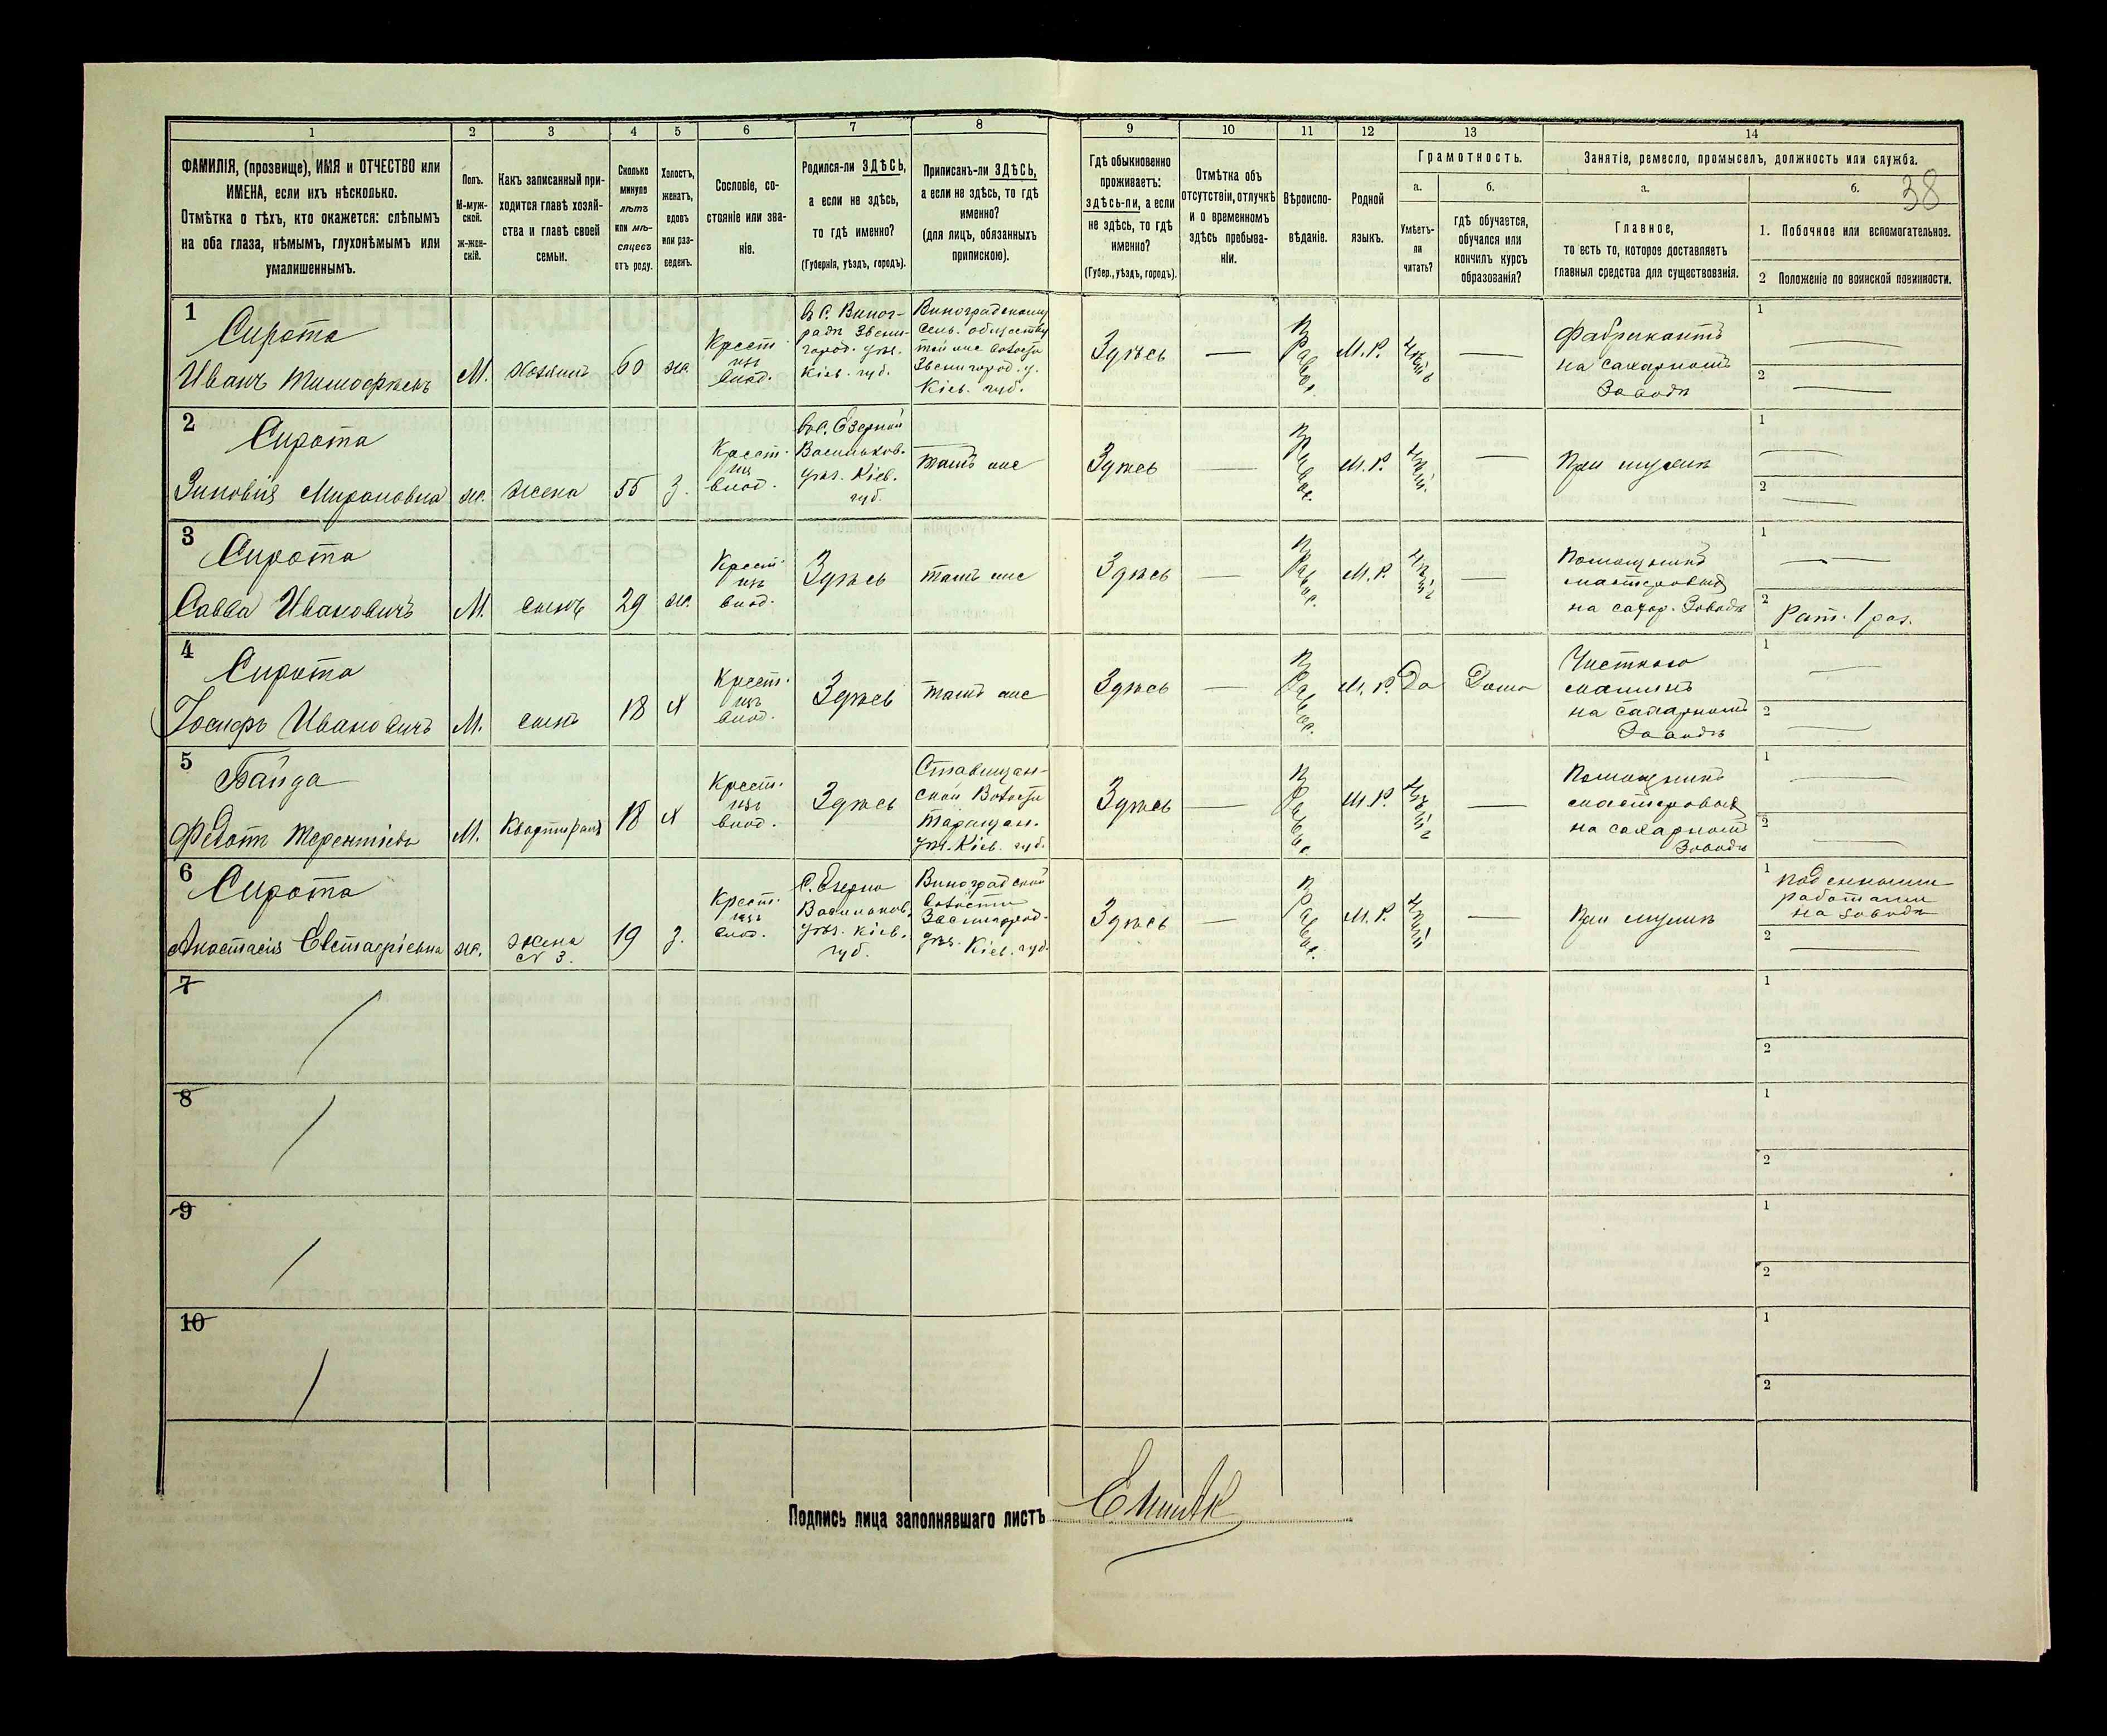 1 2 3 4 5 6 7 8 9 10 11 12 13 14
ФАМИЛІЯ, (прозвище), ИМЯ и ОТЧЕСТВО или
ИМЕНА, если ихъ нѣсколько.
Отмѣтка о тѣхъ, кто окажется: слѣпымъ
на оба глаза, нѣмымъ, глухонѣмымъ или
умалишеннымъ.
Полъ.
М-муж-
ской.
Ж-жен-
скій.
Какъ записанный при-
ходится главѣ хозяй-
ства и главѣ своей
семьи.
Сколько
минуло
лѣтъ
или мѣ-
сяцевъ
отъ роду.
Холостъ,
женатъ,
вдовъ
или раз-
веденъ.
Сословіе, со-
стояніе или зва-
ніе.
Родился-ли ЗДѢСЬ,
а если не здѣсь,
то гдѣ именно?
(Губернія, уѣздъ, городъ).
Приписанъ-ли ЗДѢСЬ,
а если не здѣсь, то гдѣ
именно?
(для лицъ, обязанныхъ
припискою).
Гдѣ обыкновенно
проживаетъ:
здѣсь-ли, а если
не здѣсь, то гдѣ
именно?
(Губер., уѣздъ, городъ).
Отмѣтка объ
отсутствіи, отлучкѣ
и о временномъ
здѣсь пребыва-
ніи.
Вѣроиспо-
вѣданіе.
Родной
языкъ.
Грамотность.
а.
Умѣетъ-
ли
читать?
б.
гдѣ обучается,
обучался или
кончилъ курсъ
образованія?
Занятіе, ремесло, промыселъ, должность или служба.
а.
Главное,
то есть то, которое доставляетъ
главныя средства для существованія.
б.
38
1. Побочное или вспомогательное.
2 Положеніе по воинской повинности.
1
Сирота
Иванъ Тимофѣевъ
М.
хозяинъ
60
ж.
Крест.
изъ
влад.
В С. Виног-
радѣ Звени-
город. уѣз.
Кіев. губ.
Виноградскому
Сель. обществу
той же волости
Звенигород. у.
Кіев. губ.
Здѣсь
—
Правос.
М. Р.
—
Фабрикантъ
на сахарномъ
Заводѣ
1
2
2
Сирота
Зиновія Мироновна
ж.
жена
55
З.
Крест.
изъ
влад.
Васильков.
уѣз. Кіев.
губ.
тамъ же
Здѣсь
—
Правос.
М. Р.
—
При мужѣ
1
2
3
Сирота
Савва Ивановичъ
М.
сынъ
29
ж.
Крест.
изъ
влад.
Здѣсь
тамъ же
Здѣсь
—
Правос.
М. Р.
—
Помощникъ
мастеровый
на сахар. Заводѣ
1
2 Рат. 1 раз.
4
Сирота
Іосифъ Ивановичъ
М.
сынъ
18
х
Крест.
изъ
влад.
Здѣсь
тамъ же
Здѣсь
—
Правос.
М. Р.
Да
Дома
машинъ
на сахарномъ
Заводѣ
1
2
5
Байда
Федотъ Терентіевъ
М.
Квартирант
18
х
Крест.
изъ
влад.
Здѣсь
Ставищан-
ской Волости
Таращан.
уѣз. Кіев. губ.
Здѣсь
—
Правос.
М. Р.
—
Помощникъ
мастеровый
на сахарномъ
Заводѣ
1
2
6
Сирота
Анастасія Евстафіевна
ж.
жена
№ 3.
19
З.
Крест.
изъ
влад.
С. Езерно
Васильков.
уѣз. Кіев.
губ.
Виноградской
волости
Звенигород.
уѣз. Кіев. губ.
Здѣсь
—
Правос.
М. Р.
—
При мужѣ
1 работами
на заводѣ
2
7
1
2
8
1
2
9
1
2
10
1
2
Подпись лица заполнявшаго листъ